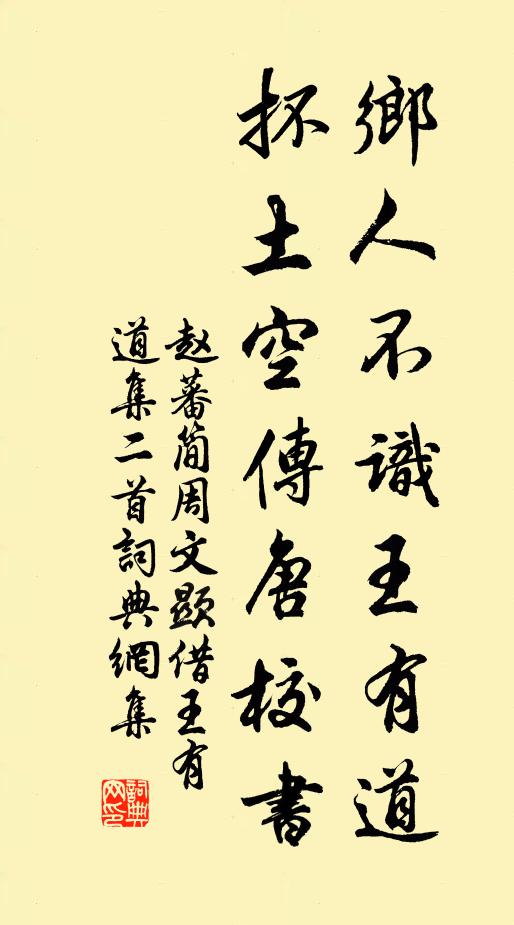 鄉人不識王有道
抔土空傳唐校書
赵蕃简周文顯借王有
道集二首詞典網集
詞典网印